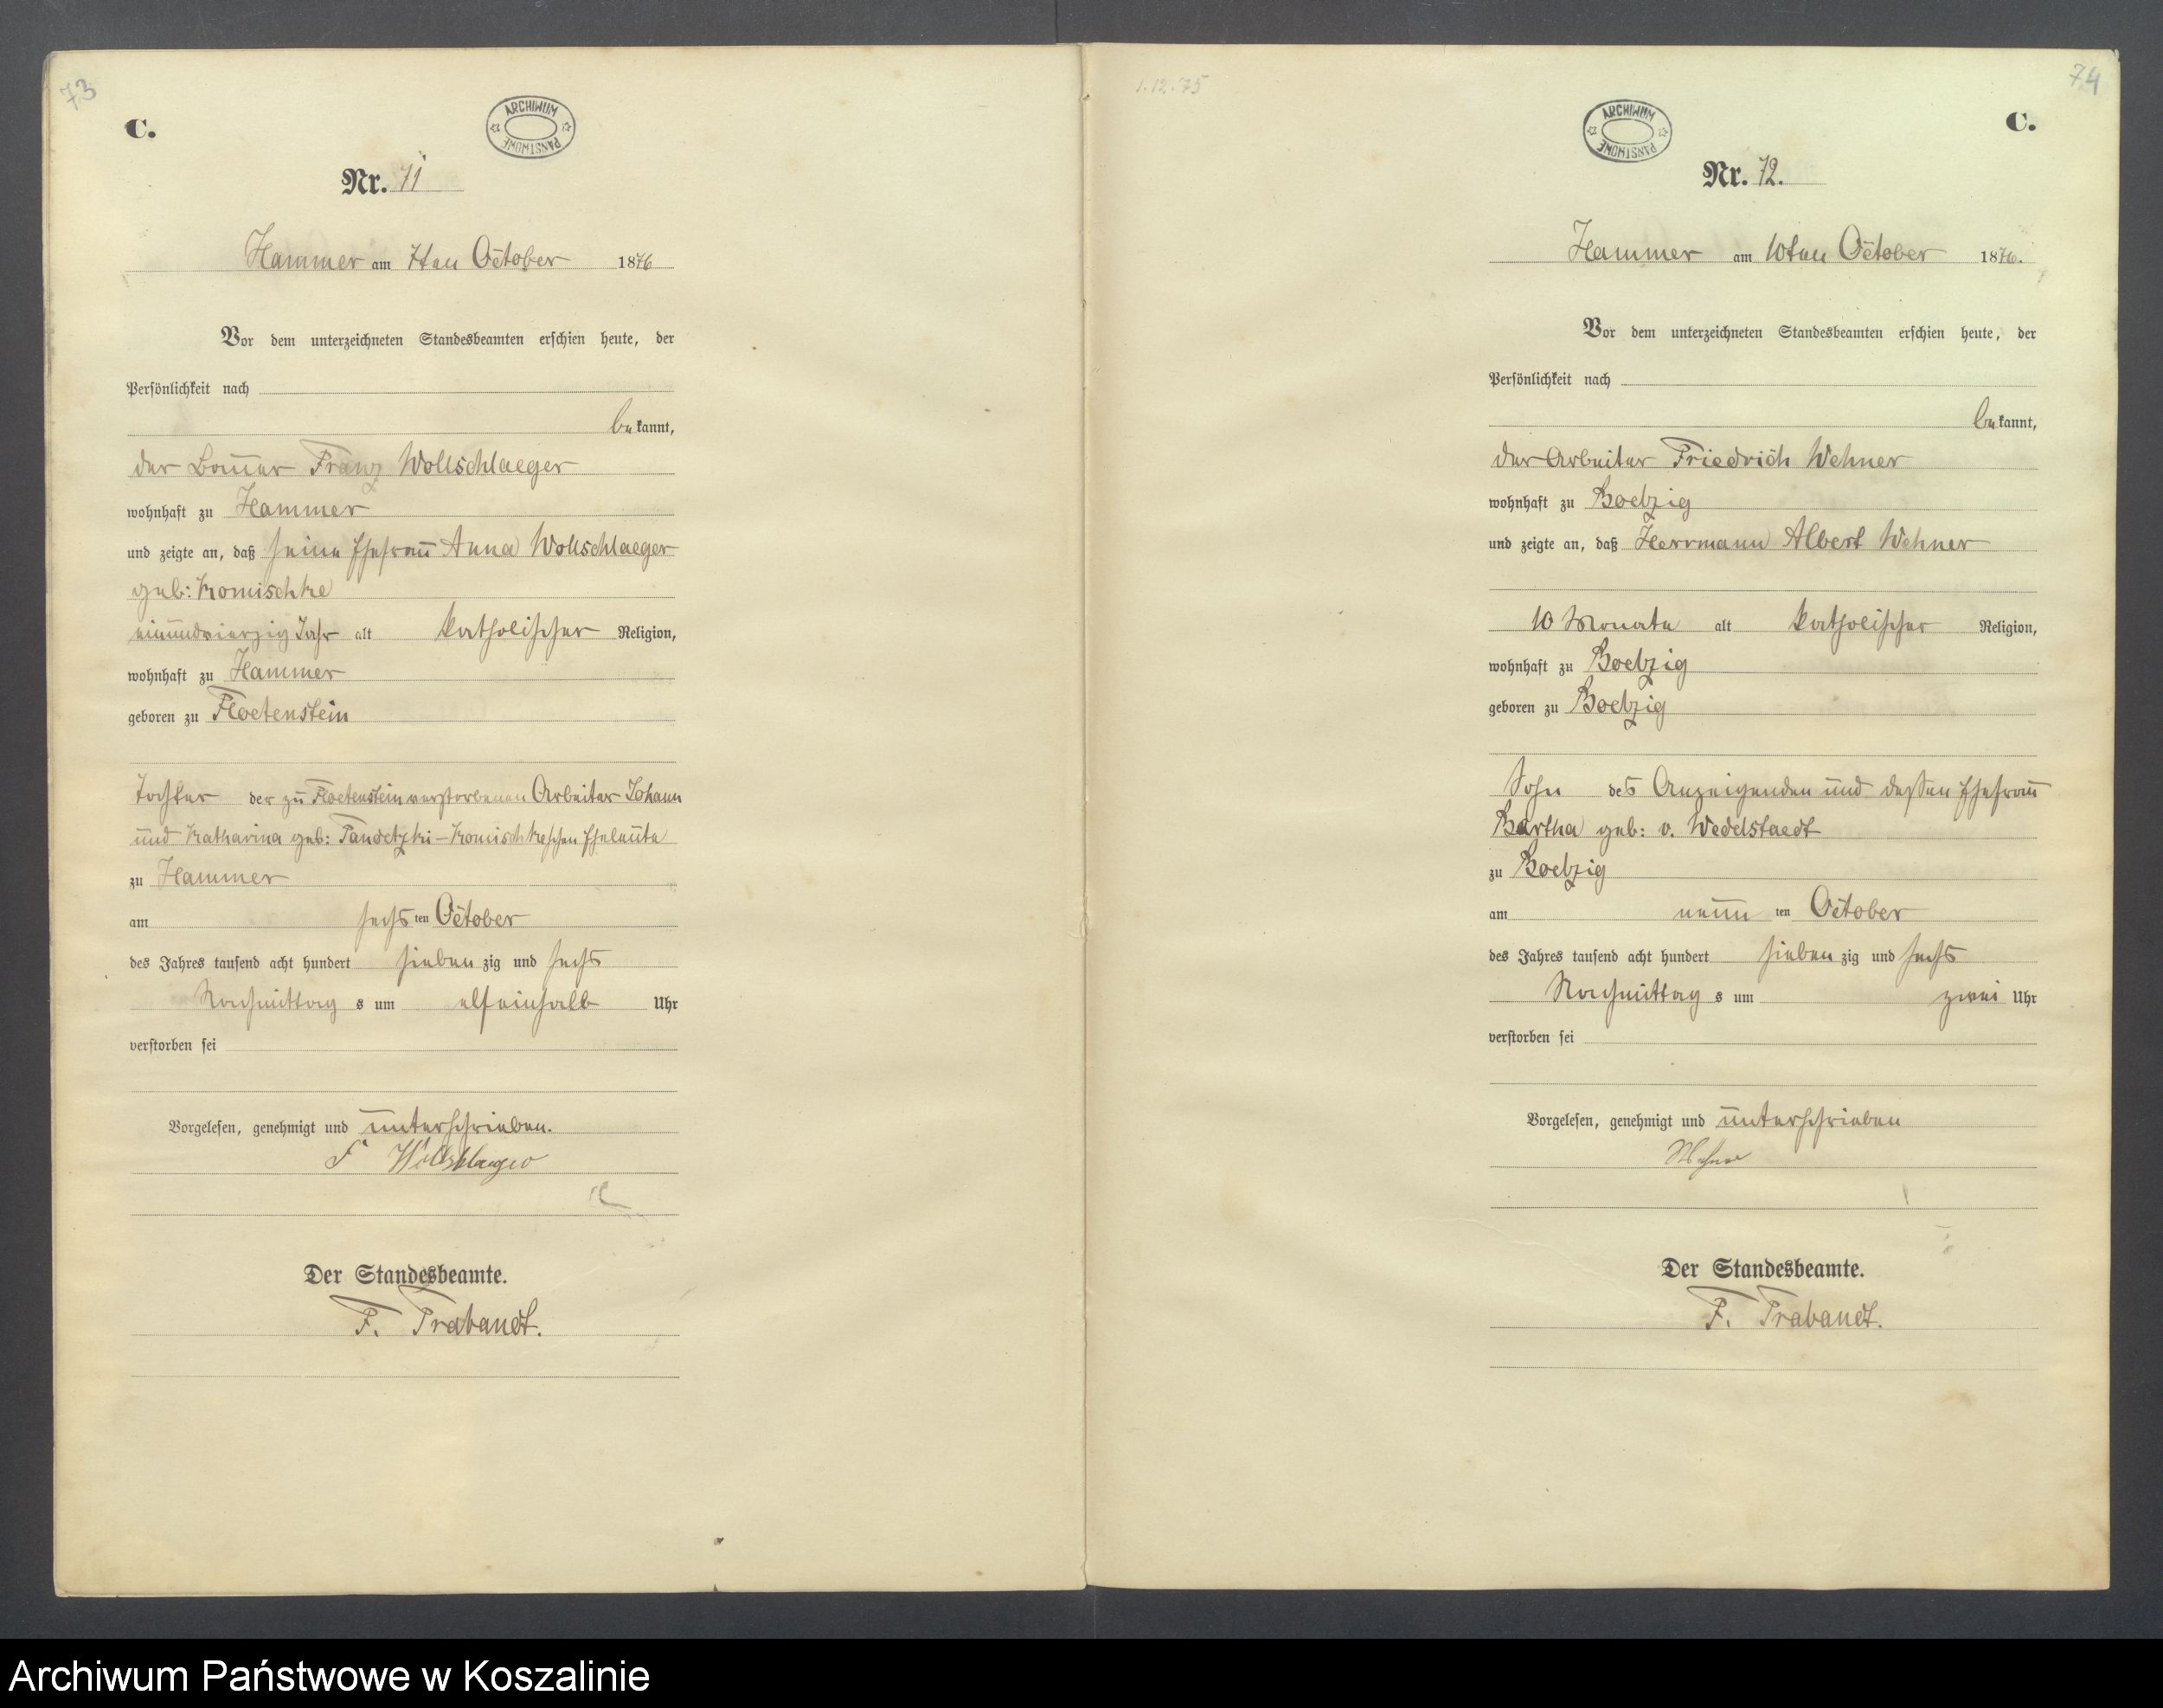 73
C.
ARCHIWUM PAŃSTWOWE
Nr. 71
Hammer am 7ten October 1876
Vor dem unterzeichneten Standesbeamten erschien heute, der
Persönlichkeit nach
bekannt,
der Bauer Franz Wollschlaeger
wohnhaft zu Hammer
und zeigte an, daß seine Ehefrau Anna Wollschlaeger
geb: Komischke
einundvierzig Jahr alt katholischer Religion,
wohnhaft zu Hammer
geboren zu Floetenstein
Tochter der zu Floetenstein verstorbenen Arbeiter Johann
und Katharina geb: Pandetzki-Komischkeschen Eheleute
zu Hammer
am sechsten October
des Jahres tausend acht hundert siebenzig und sechs
Nachmittags um elfeinhalb Uhr
verstorben sei
Vorgelesen, genehmigt und unterschrieben.
F Wollschlaeger
Der Standesbeamte.
F. Trabandt.
1.12.75
74
C.
ARCHIWUM PAŃSTWOWE
Nr. 72.
Hammer am 10ten October 1876.
Vor dem unterzeichneten Standesbeamten erschien heute, der
Persönlichkeit nach
bekannt,
der Arbeiter Friedrich Wehner
wohnhaft zu Boelzig
und zeigte an, daß Herrmann Albert Wehner
10 Monate alt katholischer Religion,
wohnhaft zu Boelzig
geboren zu Boelzig
Sohn des Anzeigenden und dessen Ehefrau
Bertha geb: v. Wedelstaedt
zu Boelzig
am neunten October
des Jahres tausend acht hundert siebenzig und sechs
Nachmittags um zwei Uhr
verstorben sei
Vorgelesen, genehmigt und unterschrieben
Wehner
Der Standesbeamte.
F. Trabandt.
Archiwum Państwowe w Koszalinie